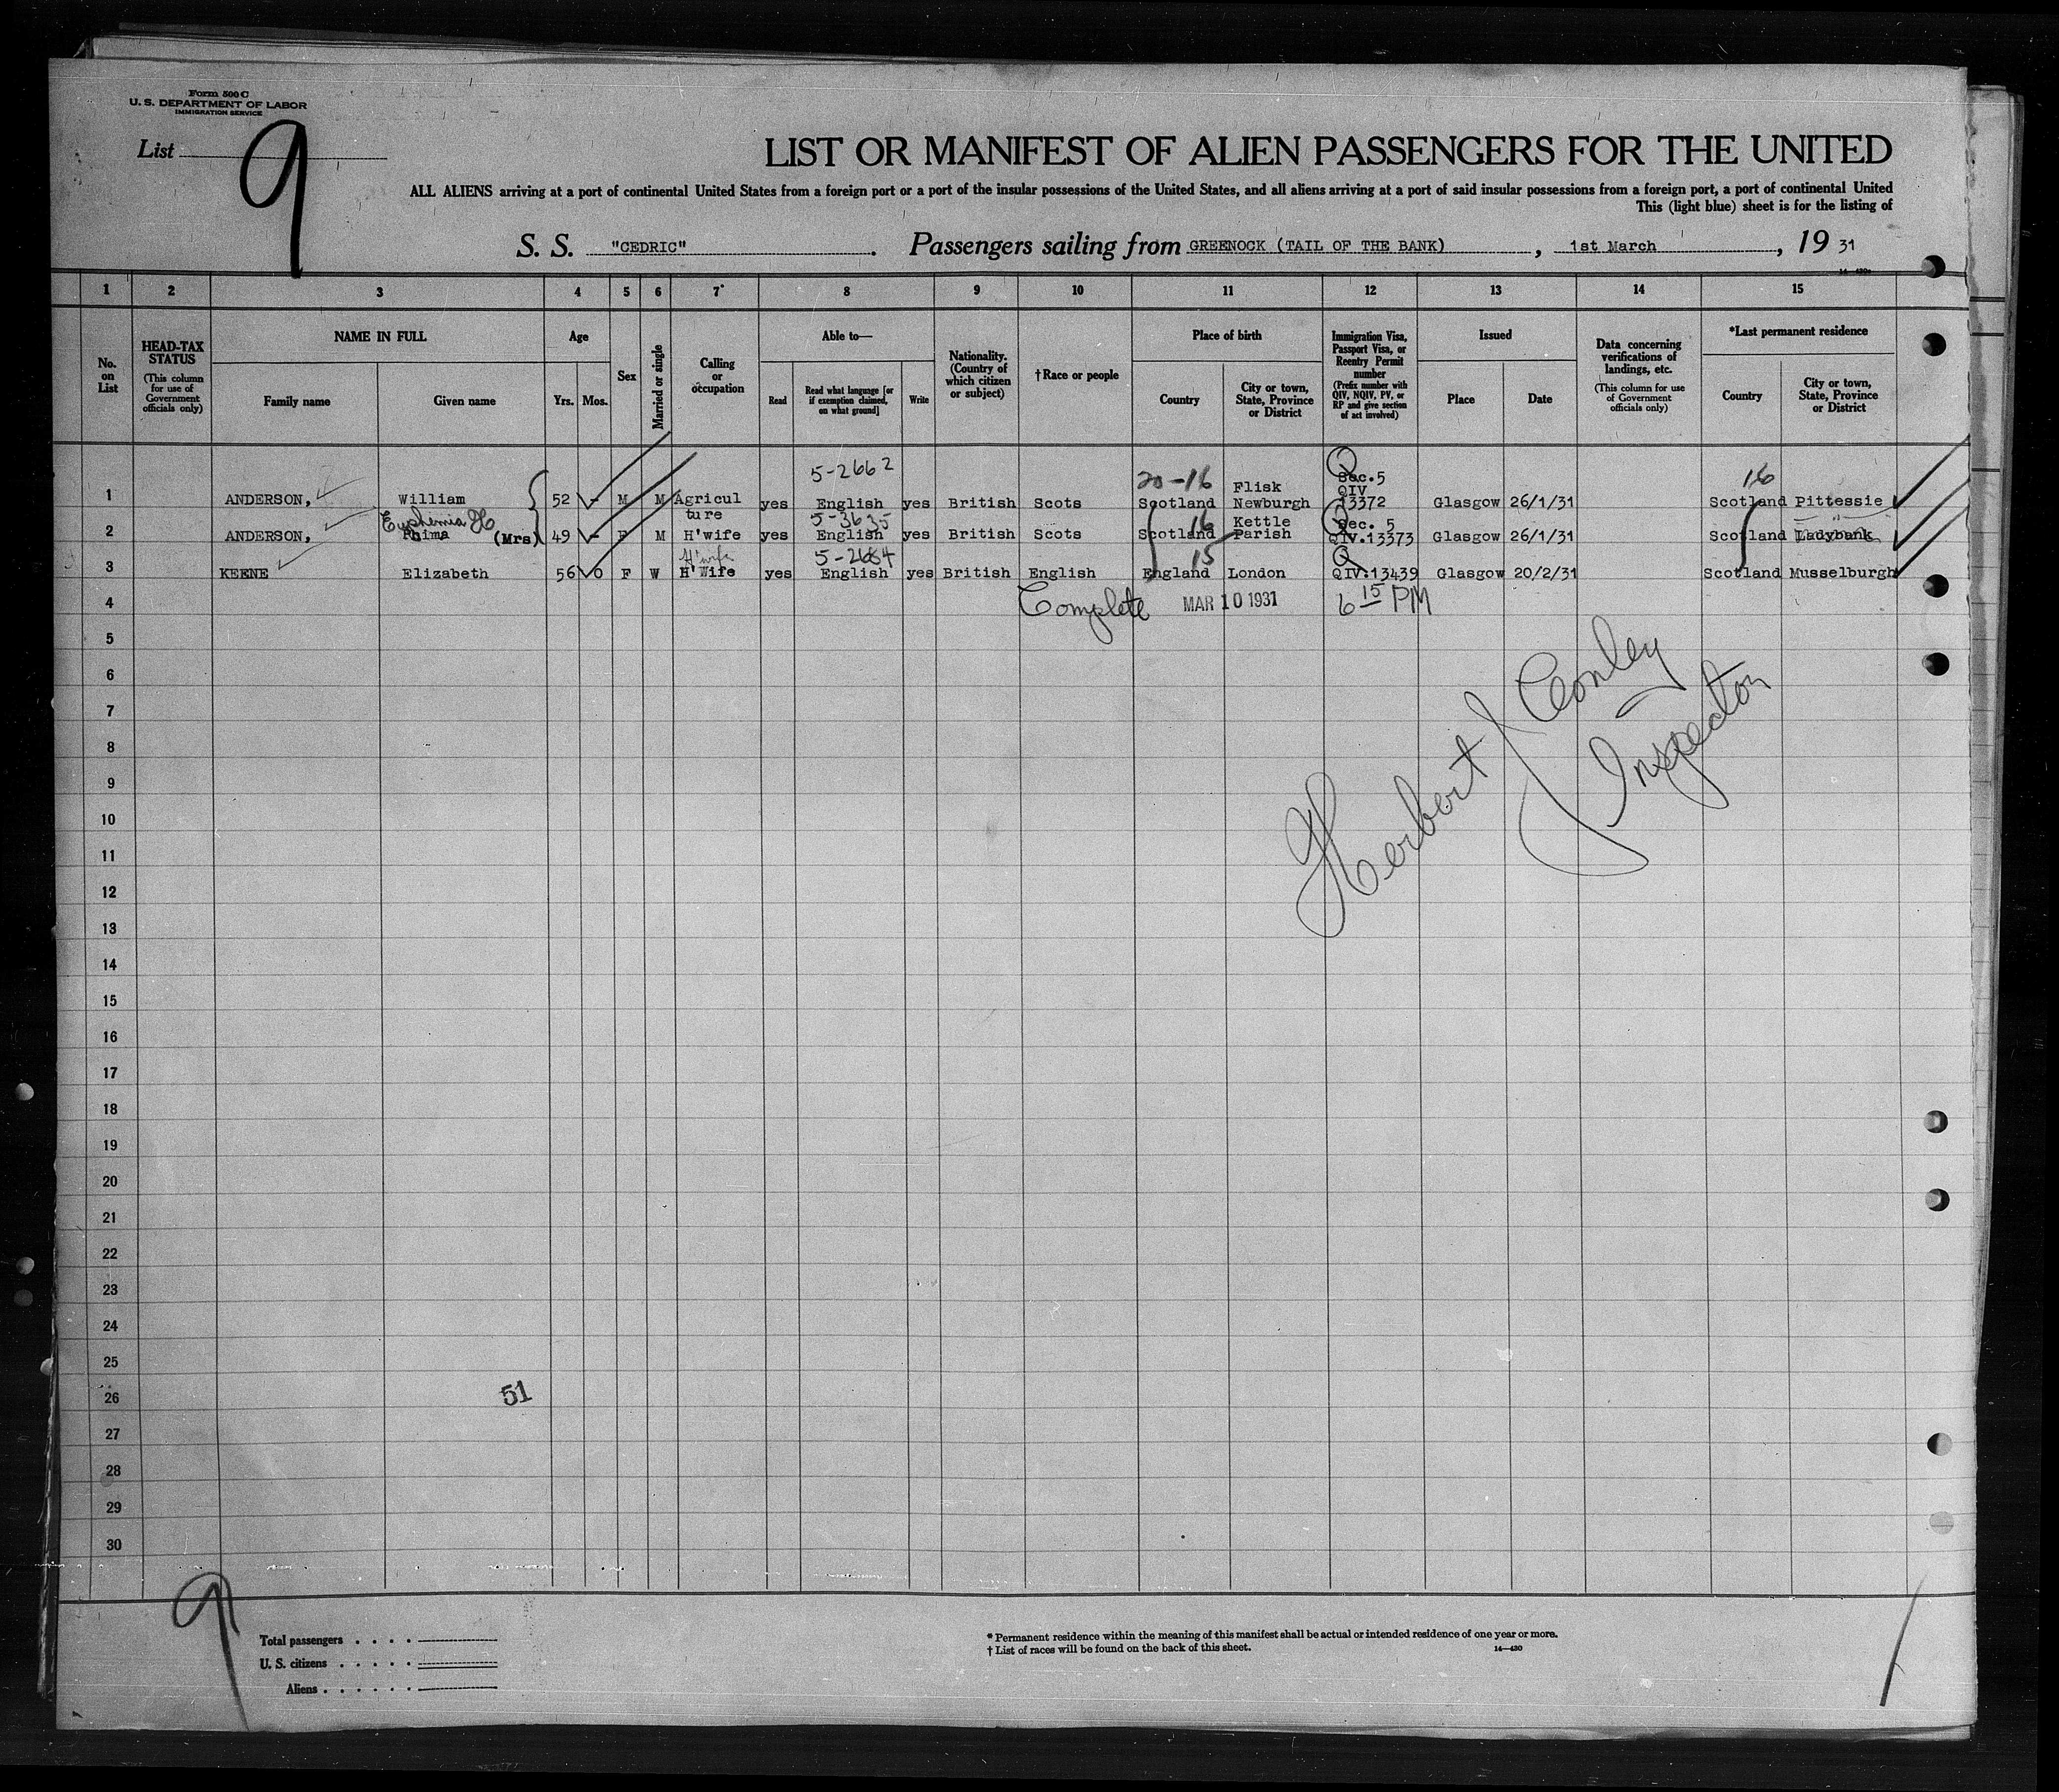 Form 500 C
U. S. DEPARTMENT OF LABOR
IMMIGRATION SERVICE
List 9
LIST OR MANIFEST OF ALIEN PASSENGERS FOR THE UNITED
ALL ALIENS arriving at a port of continental United States from a foreign port or a port of the insular possessions of the United States, and all aliens arriving at a port of said insular possessions from a foreign port, a port of continental United
This (light blue) sheet is for the listing of
S. S. "CEDRIC". Passengers sailing from GREENOCK (TAIL OF THE BANK), 1st March, 19 31
1 2 3 4 5 6 7 8 9 10 11 12 13 14 15
No. on List
HEAD-TAX STATUS (This column for use of Government officials only)
NAME IN FULL
Family name
Given name
Age
Yrs. Mos.
Sex
Married or single
Calling or occupation
Able to—
Read
Read what language [or if exemption claimed, on what ground]
Write
Nationality. (Country of which citizen or subject)
†Race or people
Place of birth
Country
City or town, State, Province or District
Immigration Visa, Passport Visa, or Reentry Permit number (Prefix number with QIV, NQIV, PV, or RP and give section of act involved)
Issued
Place
Date
Data concerning verifications of landings, etc. (This column for use of Government officials only)
*Last permanent residence
Country
City or town, State, Province or District
5-2662 20-16 Q 16
Sec.5
Flisk QIV
1 ANDERSON, William 52 - M M Agricul yes English yes British Scots Scotland Newburgh 13372 Glasgow 26/1/31 Scotland Pittessie
ture
Euphemia H 5-3635 16 Kettle Q Sec. 5
2 ANDERSON, (Mrs) 49 - F M H'wife yes English yes British Scots Scotland Parish QIV.13373 Glasgow 26/1/31 Scotland Ladybank
H'wife 5-2684 15 Q
3 KEENE Elizabeth 56 0 F W H'Wife yes English yes British English England London QIV.13439 Glasgow 20/2/31 Scotland Musselburgh
4 Complete MAR 10 1931 6 15 PM
5
6
7
8
9
10
11
12
13
14
15
16
17
18
19
20
21
22
23
24
25
26
27
28
29
30
Herbert J Conley
Inspector
51
9
Total passengers . . . .
U. S. citizens . . . . .
Aliens . . . . . .
* Permanent residence within the meaning of this manifest shall be actual or intended residence of one year or more.
† List of races will be found on the back of this sheet. 14—430